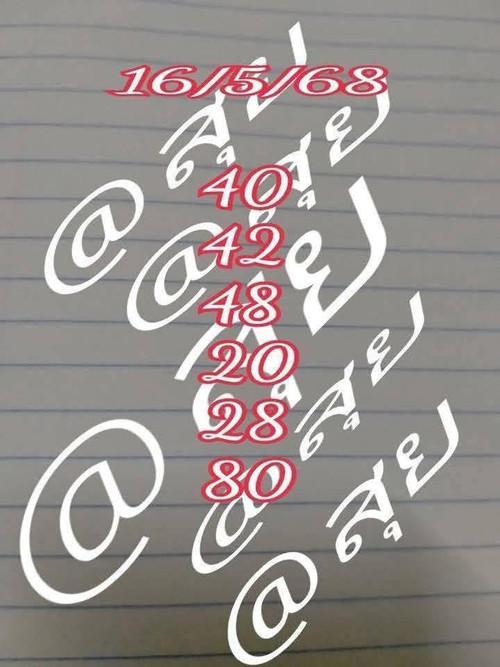 16/5/68
@สุย
@สุย
40
42
48
@สุย
20
28
80
@สุย
@สุย